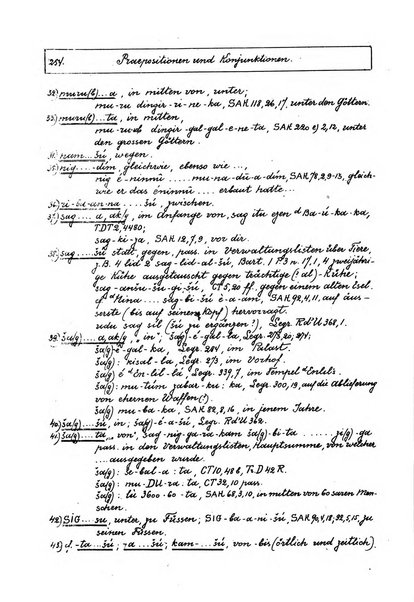 254. Praepositionen und Konjunktionen.
32) muru(b)...a, in mitten von, unter;
mu-ru dingir-ri-ne-ka, SAK 118, 26, 17, unter den Göttern.
33) muru(b)...ta, in mitten,
dingir-gal-gal-e-ne-ta, SAK 220 e) 2, 12, unter
den grossen Göttern.
34) nam...šú, wegen.
35) nig....dim, gleichwie, ebenso wie...,
nig é-ninnû .... mu-na-dū-a-dim, SAK 78, 2, 9-13, gleich-
wie er das éninnû .... erbaut hatte...
36) ri-ba-an-na....šú, zwischen.
37) sag....a, ak/g, im Anfange von, sag itu ezen ᵈBa-ú-ka-ka,
TDT 2, 4480;
sag-ki-ja, SAK 12, 7, 9, vor dir.
38) sag....šú statt, gegen, pass. in Verwaltungslisten über Tiere,
z.B. 4 lid 2 sag-lid-al-šú, Bart. 1 P 3 n 17, 1, 4 zweijähri-
ge Kühe ausgetauscht gegen trächtige (: al)-Kühe;
sag-anšu-šu-gi-šú, CT 5, 20 ff. gegen einem alten Esel.
ᵈNina....sag-bi-šú é-a-am, SAK 92, 4, 11, auf äus-
serste (bis auf seinem Kopf) hervorragt.
udu sag sil (šú zu ergänzen?), Legr. Rd'U 368, 1.
39) ša(g)....a, ak/g "in", ša(g)-é-gal-ta, Legr. 278, 20, 274;
ša(g) é-gal-ka, Legr. 284, im Palast.
ša(g): kisal-la, Legr. 273, im Vorhof.
ša(g) é ᵈEn-lil-lá Legr. 339, 7, im Tempel ᵈEnlils.
ša(g): mu-túm zabar-ku: ka, Legr. 300, 19, auf die Ablieferung
von ehernen Waffen (?).
ša(g) mu-ba-ka, SAK 82, 8, 16, in jenem Jahre.
40) ša(g)....šú, in, ša(g)-é-a-šú, Legr. Rd'U 362.
41) ša(g)....ta "von", sag-nig-ga-ra-kam ša(g)-bi-ta..... zi(g)-ga
pass. in den Verwaltungslisten, Hauptsumme, von welcher
....ausgegeben wurde.
ša(g): še-bal-a-ta, CT 10, 48 b, T.D 42 R.
ša(g): mu-DU-ra-ta, CT 32, 10 pass.
ša(g): lú 3600·60-ta, SAK 68, 3, 10, in mitten von 60 saren Men-
schen.
42) SIG....su, unter, zu Füssen; SIG-ba-a-ni-šú, SAK 90, 4, 18; 92, 5, 15, zu
seinen Füssen.
43) -ta...šú; -a-šú; kam-...šú, von-bis (örtlich und zeitlich).